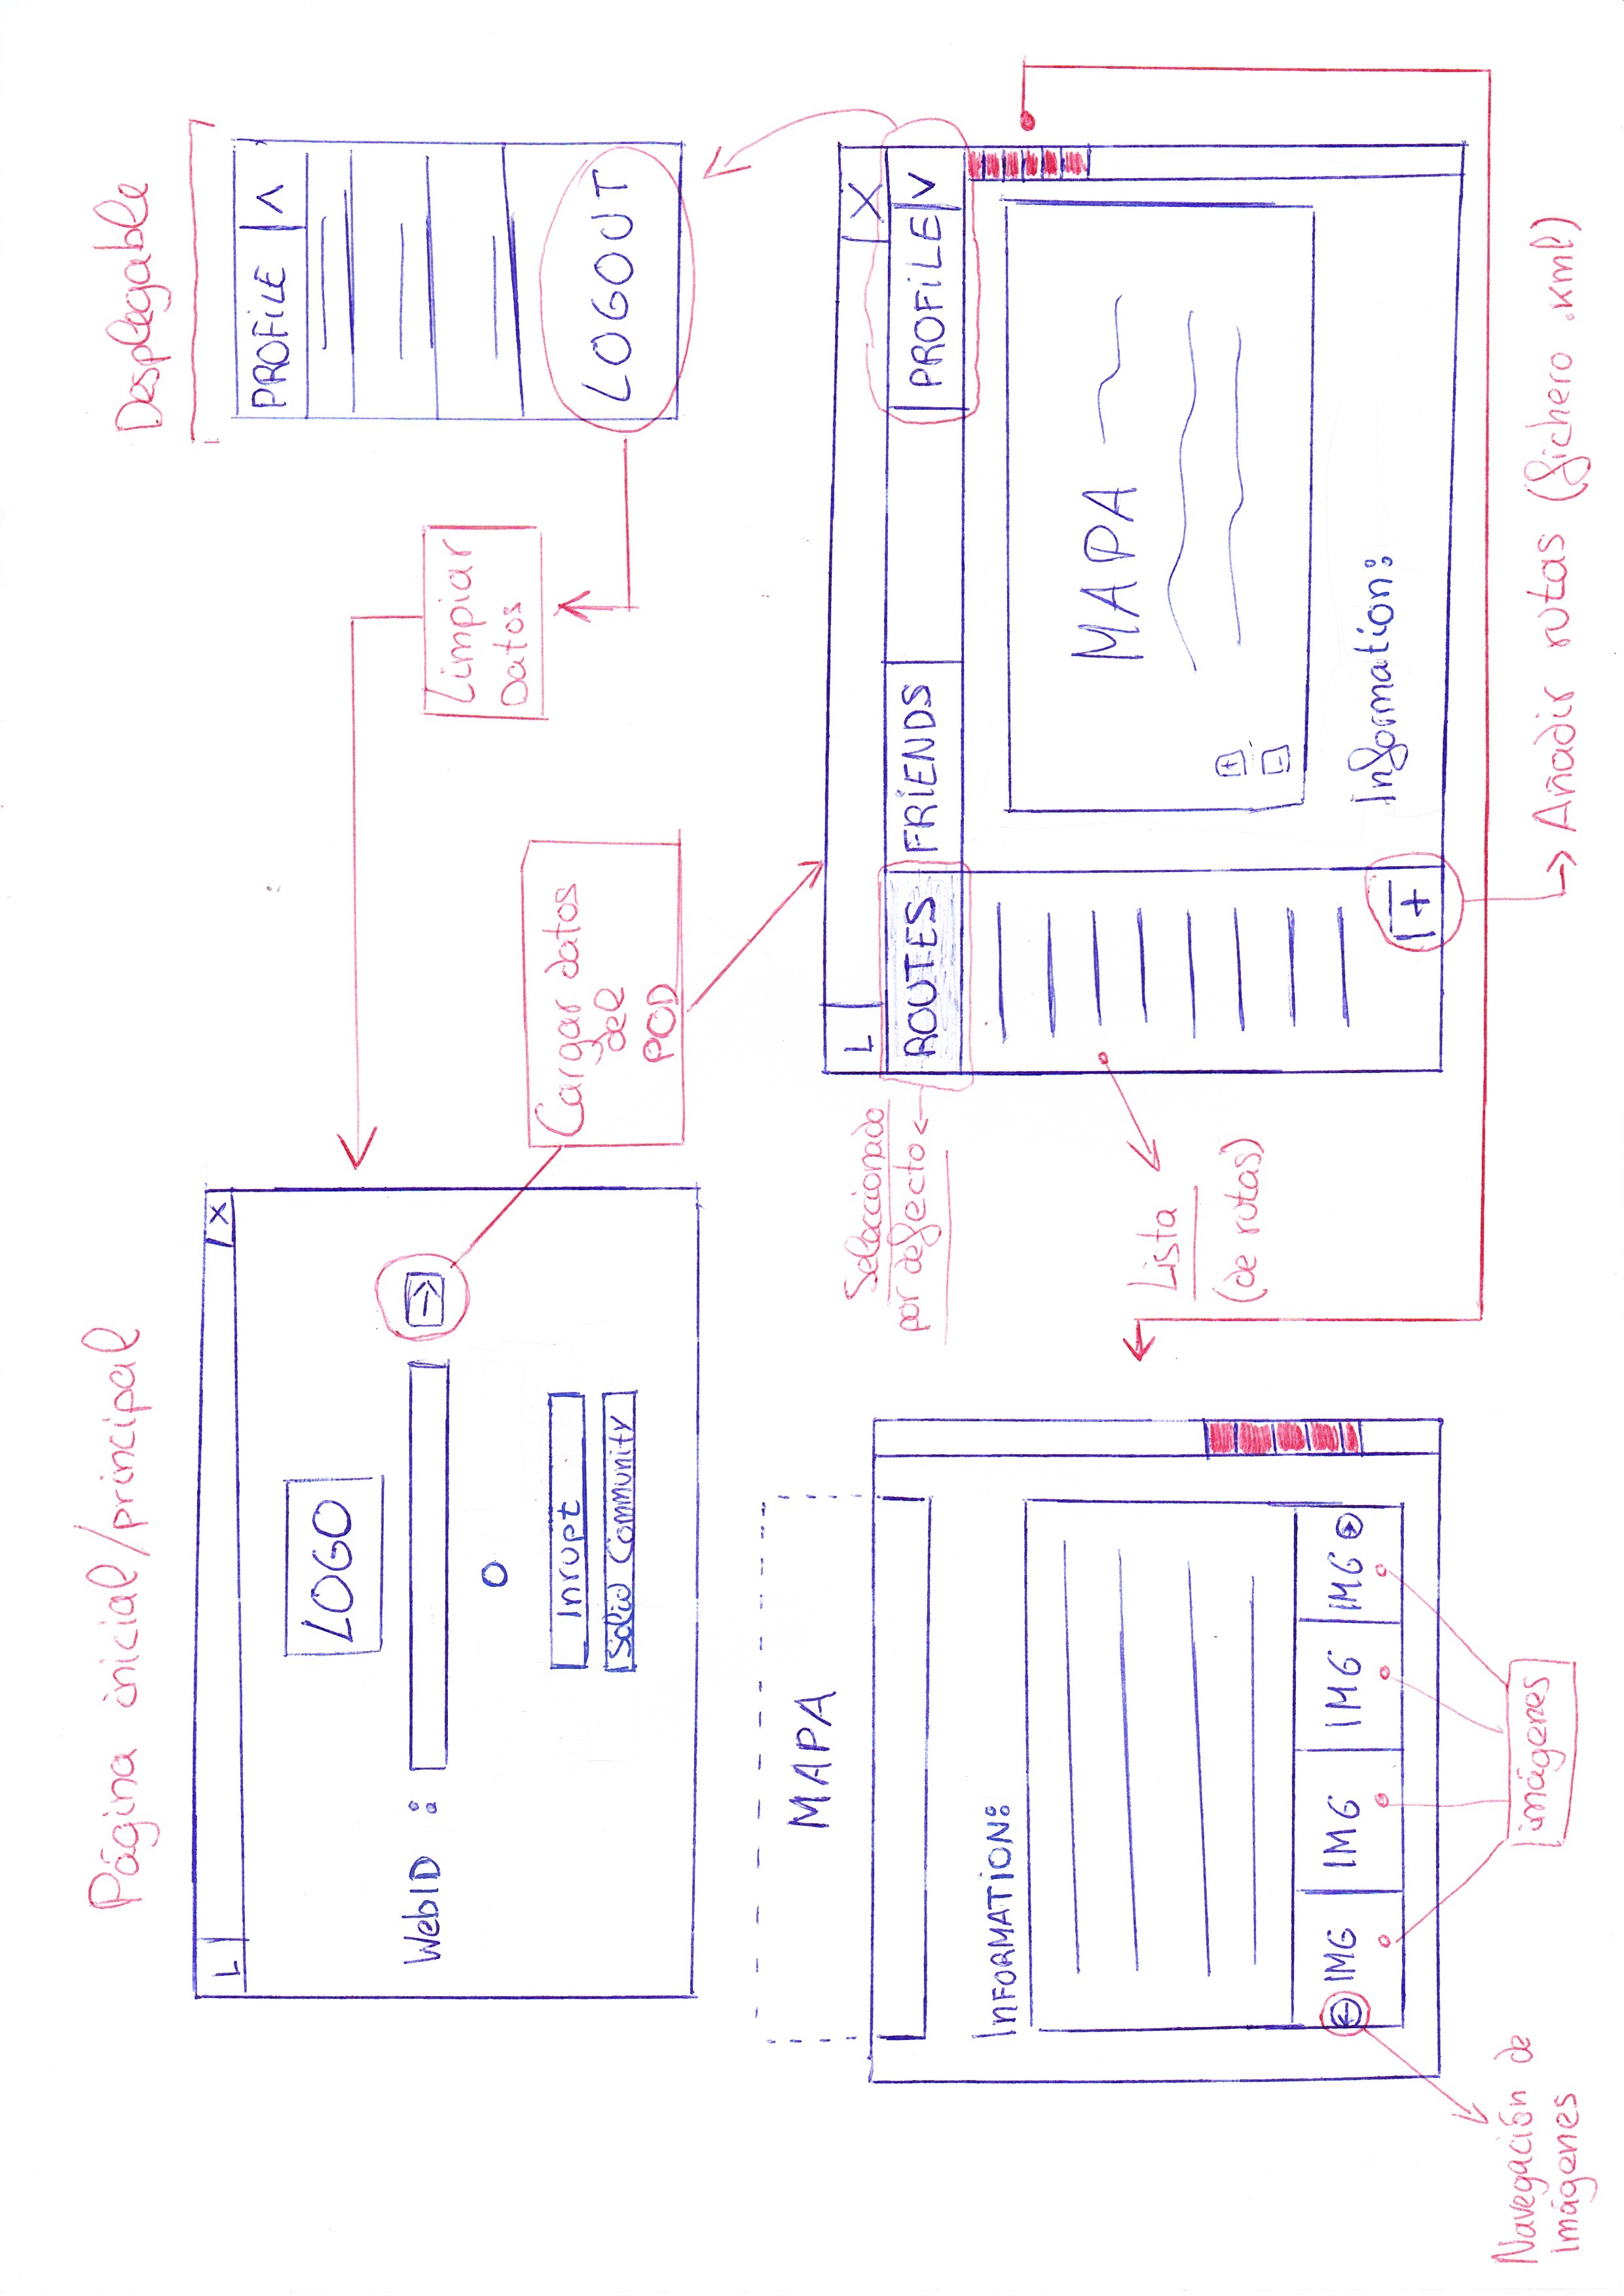 Página inicial/principal
L
X
LOGO
WebID :
→
O
Inrupt
Solid Community
Cargar datos
del
POD
Limpiar
Datos
Desplegable
PROFiLE ∧
LOGOUT
MAPA
INFORMATiON:
IMG IMG IMG IMG
Navegación de
Imágenes
imágenes
Seleccionado
por defecto
L
X
ROUTES FRiENDS PROFiLE V
Lista
(de rutas)
MAPA
+
-
Information:
+
Añadir rutas (fichero .kml)